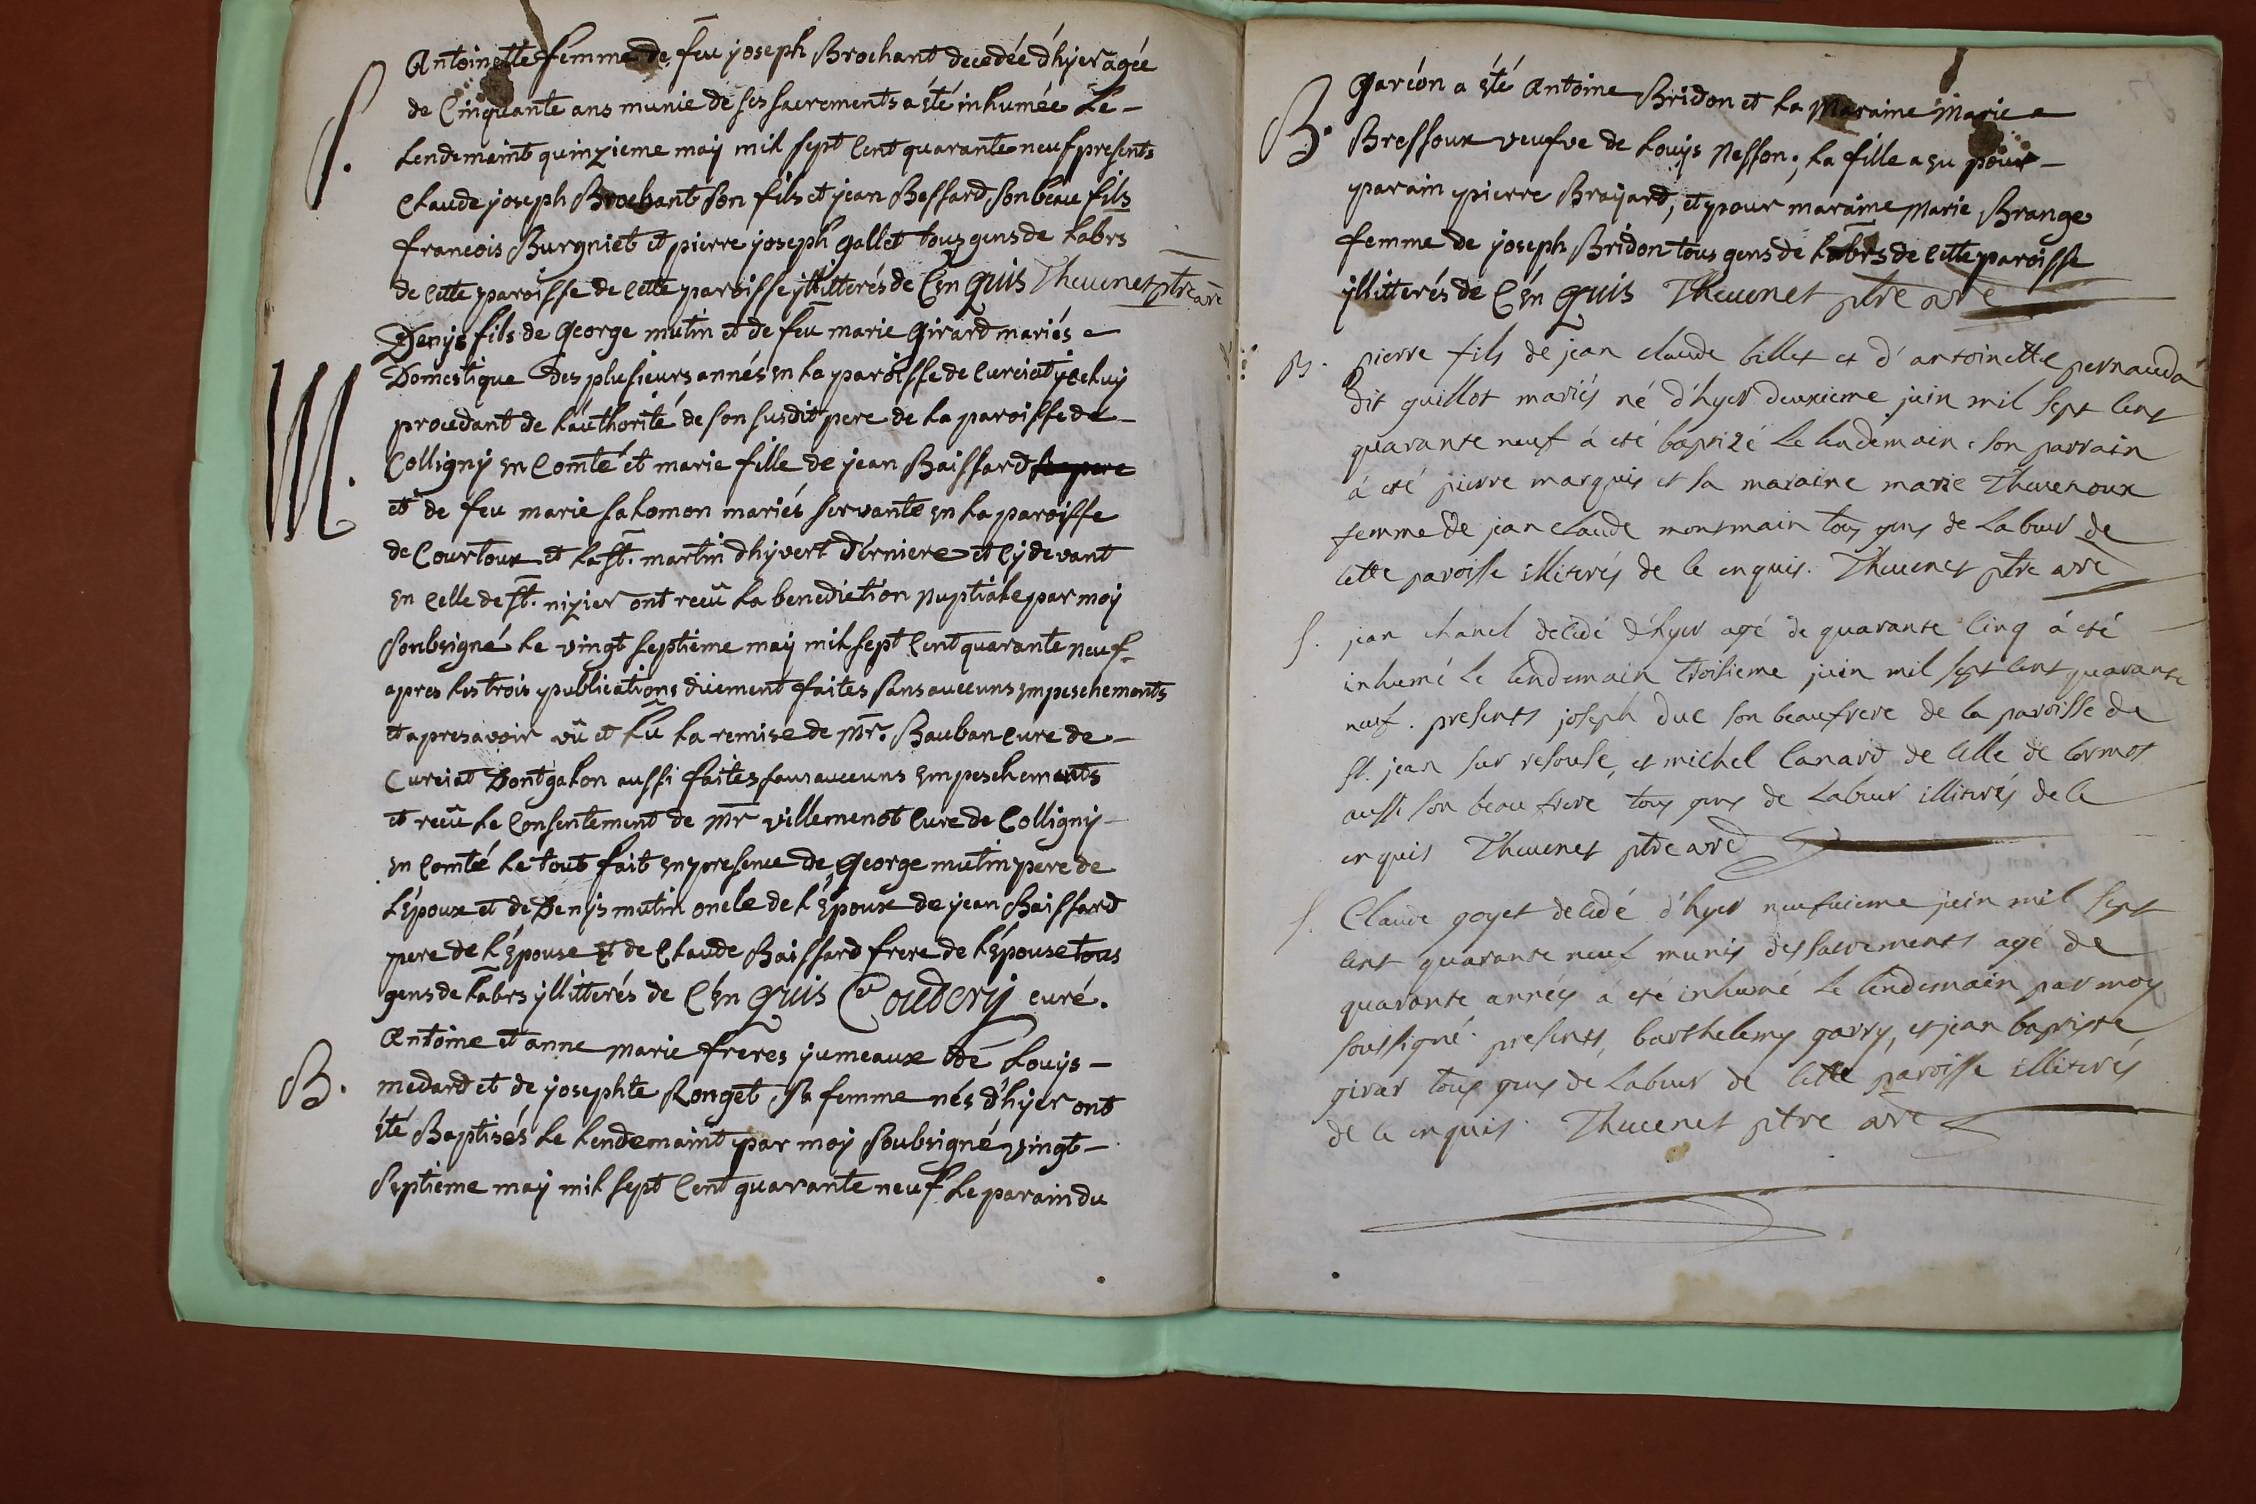 S.
Antoinette femme de feu joseph Brochant decedée d'hyer agée
de Cinquante ans munie de ses sacrements a été inhumée Le -
Lendemaint quinzieme may mil sept Cent quarante neuf presents
Claude joseph Brochant son fils et jean Bessard son beau fils
francois Burgniet et pierre joseph gallet tous gens de Labrs
de Cette paroisse de Cette paroisse yllitterés de C'en quis Theuenet ptre are
M.
Denys fils de George mutin et de feu marie Girard mariés
Domestique des plusieurs annés en La paroisse de Curciat yceluy
procedant de L'authorité de son susdit pere de La paroisse de -
Colligny en Comté et marie fille de jean Baissard
et de feu marie Salomon mariés servante en La paroisse
de Courtoux et La St. martin d'hyvert d'erniere et Cy devant
en Celle de St. nizier ont recû La benediction nuptiale par moy
Soubsigné Le vingt septieme may mil sept Cent quarante neuf -
apres Les trois publications düement faites sans aucuns empeschements
et apres avoir vû et Lû La remise de Mr. Bauban Cure de -
Curciat Dontgalon aussi faites sans aucuns empeschements
et recû Le Consentement de Mr villemenot Cure de Colligny -
en Comté Le tout fait en presence de George mutin pere de
L'Epoux et de Denys mutin oncle de L'Epoux de jean Baissard
pere de L'Epouse et de Claude Baissard frere de L'Epouse tous
gens de Labrs yllitterés de C'en quis Coudery curé.
B.
Antoine et anne marie freres jumeaux de Louys -
medard et de josephte Ronget Sa femme nés d'hyer ont
été Baptisés Le Lendemaint par moy Soubsigné vingt -
Septieme may mil sept Cent quarante neuf Le parain du
B.
Garcon a été Antoine Bridon et La Maraine Marie
Bressoux veufve de Louys Nesson; La fille a eu pour -
parain pierre Brayard, et pour maraine Marie Brange
femme de joseph Bridon tous gens de Labrs de Cette paroisse
yllitterés de C'en quis Theuenet ptre are
B.
pierre fils de jean claude billet et d'antoinette pernauda
dit guillot mariés né d'hyer deuxieme juin mil sept Cent
quarante neuf à eté baptizé Le lendemain. Son parrain
à eté pierre marquis et sa maraine marie Theuenoux
femme de jean claude montmain tous gens de Labour de
Cette paroisse illiterés de ce enquis. Theuenet ptre are
S.
jean chanel decedé d'hyer agé de quarante Cinq à eté
inhumé Le lendemain Troisieme juin mil sept Cent quarante
neuf. presents joseph duc son beaufrere de la paroisse de
St. jean sur resouse, et michel Canard de Celle de Cormot
aussi son beau frere tous gens de Labour illiterés de ce
enquis Theuenet ptre are
S.
Claude goyet decedé d'hyer neufuieme juin mil sept
Cent quarante neuf munis des sacrements agé de
quarante années à eté inhumé Le lendemain par moy
soussigné. presents, barthelemy garry, et jean baptiste
girar tous gens de Labour de Cette paroisse illiterés
de ce enquis. Theuenet ptre are